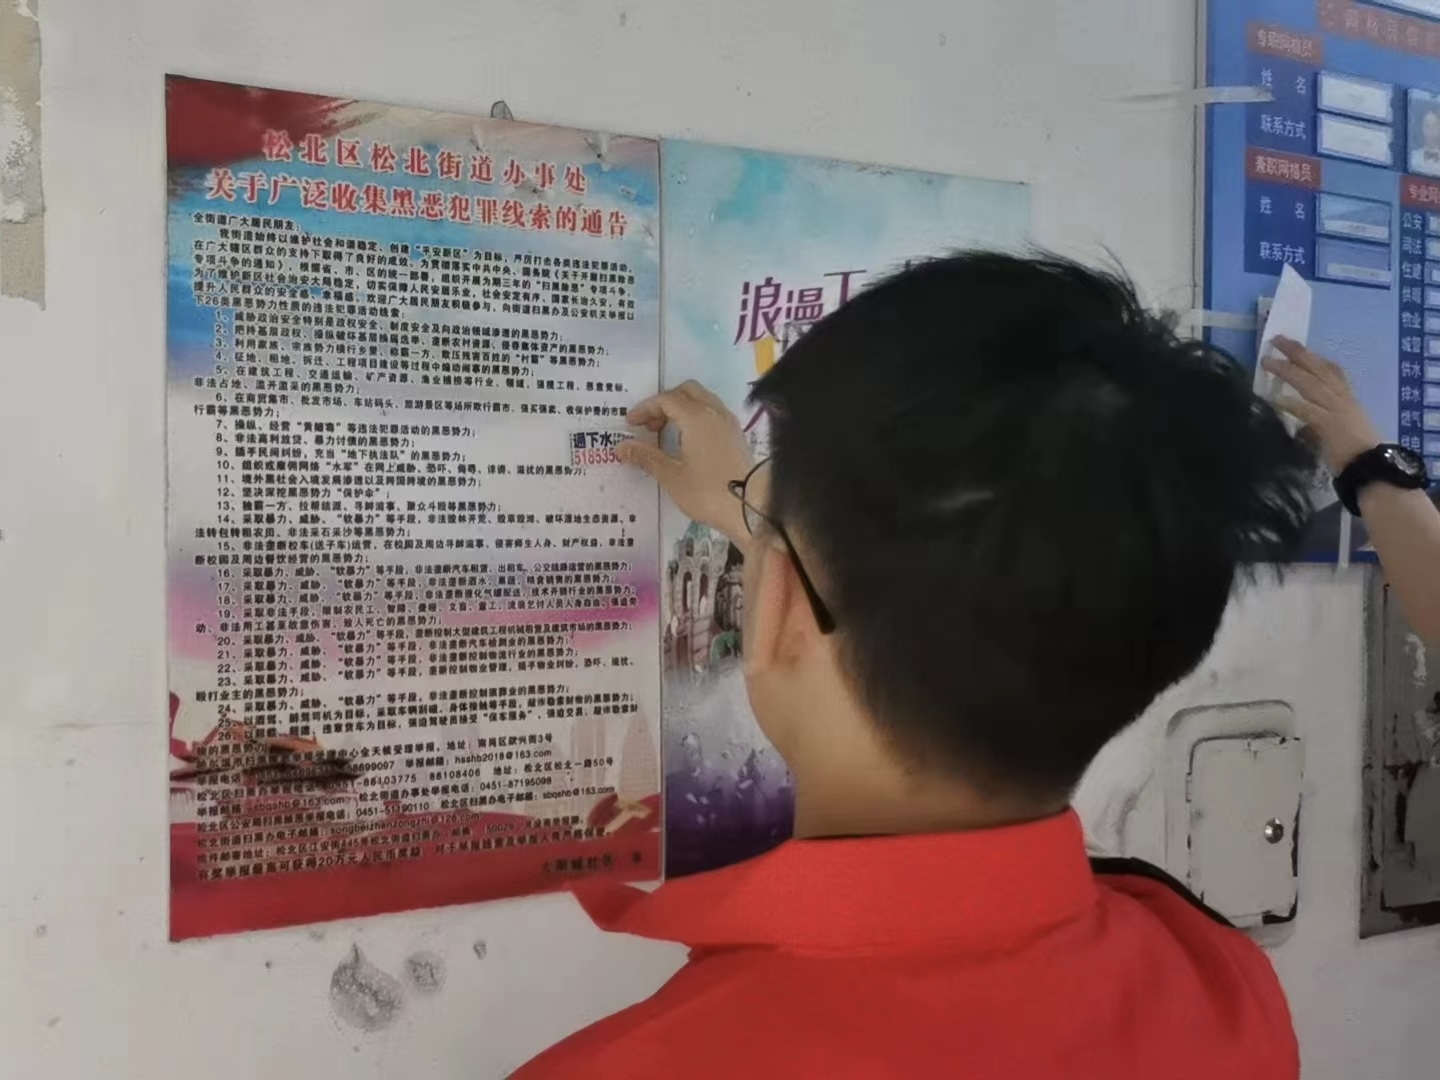 松北区松北街道办事处
关于广泛收集黑恶犯罪线索的通告
全街道广大居民朋友：
我街道始终以维护社会和谐稳定、创建“平安新区”为目标，严厉打击各类违法犯罪活动，
在广大辖区群众的支持下取得了良好的成效。为贯彻落实中共中央、国务院《关于开展扫黑除恶
专项斗争的通知》，根据省、市、区的统一部署，组织开展为期三年的“扫黑除恶”专项斗争，
为了维护新区社会治安大局稳定，切实保障人民安居乐业，社会安定有序、国家长治久安，有效
提升人民群众的安全感、幸福感。欢迎广大居民朋友积极参与，向街道扫黑办及公安机关举报以
下26类黑恶势力性质的违法犯罪活动线索：
1、威胁政治安全特别是政权安全、制度安全及向政治领域渗透的黑恶势力；
2、把持基层政权、操纵破坏基层换届选举、垄断农村资源、侵吞集体资产的黑恶势力；
3、利用家族、宗族势力横行乡里、称霸一方、欺压残害百姓的“村霸”等黑恶势力；
4、征地、租地、拆迁、工程项目建设等过程中煽动闹事的黑恶势力；
5、在建筑工程、交通运输、矿产资源、渔业捕捞等行业、领域，强揽工程、恶意竞标、
非法占地、滥开滥采的黑恶势力；
6、在商贸集市、批发市场、车站码头、旅游景区等场所欺行霸市、强买强卖、收保护费的市霸、
行霸等黑恶势力；
7、操纵、经营“黄赌毒”等违法犯罪活动的黑恶势力；
8、非法高利放贷、暴力讨债的黑恶势力；
9、插手民间纠纷，充当“地下执法队”的黑恶势力；
10、组织或雇佣网络“水军”在网上威胁、恐吓、侮辱、诽谤、滋扰的黑恶势力；
11、境外黑社会入境发展渗透以及跨国跨境的黑恶势力；
12、坚决深挖黑恶势力“保护伞”；
13、独霸一方、拉帮结派、寻衅滋事、聚众斗殴等黑恶势力；
14、采取暴力、威胁、“软暴力”等手段，非法毁林开荒、毁草毁湿、破坏湿地生态资源、非
法转包转租农田、非法采石采沙等黑恶势力；
15、非法垄断校车(送子车)运营，在校园及周边寻衅滋事、侵害师生人身、财产权益、非法垄
断校园及周边餐饮经营的黑恶势力；
16、采取暴力、威胁、“软暴力”等手段，非法垄断汽车租赁、出租车、公交线路运营的黑恶势力；
17、采取暴力、威胁、“软暴力”等手段，非法垄断酒水、果蔬、粮食销售的黑恶势力；
18、采取暴力、威胁、“软暴力”等手段，非法垄断液化气罐配送、技术开锁行业的黑恶势力；
19、采取非法手段，限制农民工、智障、傻呆、文盲、童工、流浪乞讨人员人身自由、强迫劳
动、非法用工甚至故意伤害、致人死亡的黑恶势力；
20、采取暴力、威胁、“软暴力”等手段，垄断控制大型建筑工程机械租赁及建筑市场的黑恶势力；
21、采取暴力、威胁、“软暴力”等手段，非法垄断汽车检测业的黑恶势力；
22、采取暴力、威胁、“软暴力”等手段，非法垄断控制物流行业的黑恶势力；
23、采取暴力、威胁、“软暴力”等手段，垄断控制物业管理，插手物业纠纷，恐吓、滋扰、
殴打业主的黑恶势力；
24、采取暴力、威胁、“软暴力”等手段，非法垄断控制殡葬业的黑恶势力；
25、以酒驾、醉驾司机为目标，采取车辆刮碰、身体接触等手段，敲诈勒索财物的黑恶势力；
26、以超载、超限、违章货车为目标，强迫驾驶员接受“保车服务”、强迫交易、敲诈勒索财
物的黑恶势力。
中心全天候受理举报，地址：南岗区跃兴街3号
举报电话
58699097 举报邮箱：hsshb2018@163.com
松北区扫黑办举报电话：0451-88103775 88108406 地址：松北区松北一路50号
举报邮箱：sbqshb@163.com 松北街道办事处举报电话：0451-87195098
松北区公安局扫黑除恶举报电话：0451-51190110 松北区扫黑办电子邮箱：sbqshb@163.com
松北街道扫黑办电子邮箱：songbeizhenzongzhi@126.com
信件邮寄地址：松北区江安街445号松北街道扫黑办
有奖举报最高可获得20万元人民币奖励
通下水
浪漫
专职网格员
姓 名
联系方式
兼职网格员
姓 名
联系方式
公安
司法
住建
供暖
物业
城管
供水
排水
燃气
供电